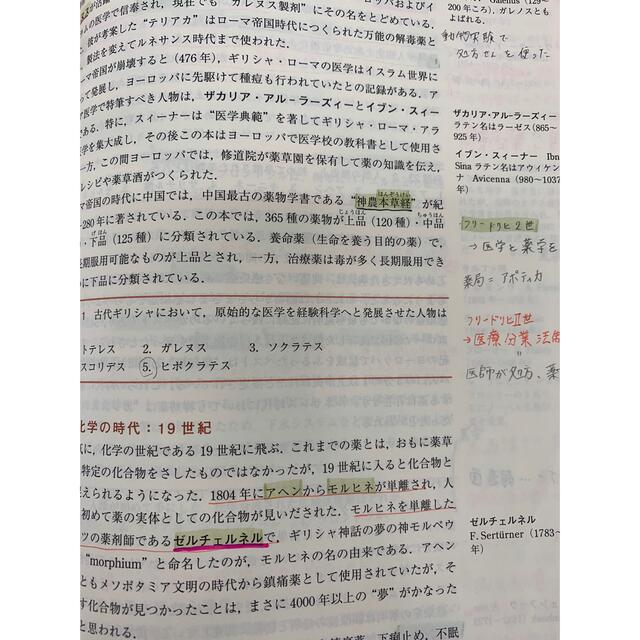 ムの医学で信奉され，現在でも“ガレヌス製剤”にその名をとどめている．
彼が考案した“テリアカ”はローマ帝国時代につくられた万能の解毒薬と
製法を変えてルネサンス時代まで使われた．
マ帝国が崩壊すると（476年），ギリシャ・ローマの医学はイスラム世界に
って発展し，ヨーロッパに先駆けて種痘も行われていたとの記録がある．ア
ア医学で特筆すべき人物は，ザカリア・アル-ラーズィーとイブン・スィー
である．特に，スィーナーは“医学典範”を著してギリシャ・ローマ・アラ
学を集大成し，その後この本はヨーロッパで医学校の教科書として使用さ
一方，この間ヨーロッパでは，修道院が薬草園を保有して薬の知識を伝え，
レシピや薬草酒がつくられた．
マ帝国の時代に中国では，中国最古の薬物学書である“神農本草経”が紀
280年に著されている．この本では，365種の薬物が上品（120種）・中品
・下品（125種）に分類されている．養命薬（生命を養う目的の薬）で，
長期服用可能なものが上品とされ，一方，治療薬は毒が多く長期服用でき
いに下品に分類されている．
1 古代ギリシャにおいて，原始的な医学を経験科学へと発展させた人物は
トテレス 2. ガレヌス 3. ソクラテス
スコリデス 5. ヒポクラテス
化学の時代：19世紀
に，化学の世紀である19世紀に飛ぶ．これまでの薬とは，おもに薬草
特定の化合物をさしたものではなかったが，19世紀に入ると化合物と
えられるようになった．1804年にアヘンからモルヒネが単離され，人
初めて薬の実体としての化合物が見いだされた．モルヒネを単離した
ツの薬剤師であるゼルチェルネルで，ギリシャ神話の夢の神モルペウ
“morphium”と命名したのが，モルヒネの名の由来である．アヘン
ともメソポタミア文明の時代から鎮痛薬として使用されていたが，そ
す化合物が見つかったことは，まさに4000年以上の“夢”がかなった
と思われる．
Galenus（129～
200年ころ）．ガレノスとも
よばれる．
動物実験で
処方せんを使った
ザカリア・アル-ラーズィー
ラテン名はラーゼス（865～
925年）
イブン・スィーナー Ibn
Sina ラテン名はアウィケン
ナ Avicenna（980～1037
年）
フリードリヒ2世
→医学と薬学を
薬局＝アポティカ
フリードリヒII世
→医療分業法
医師が処方、薬
ゼルチェルネル
F. Sertürner（1783～
年）